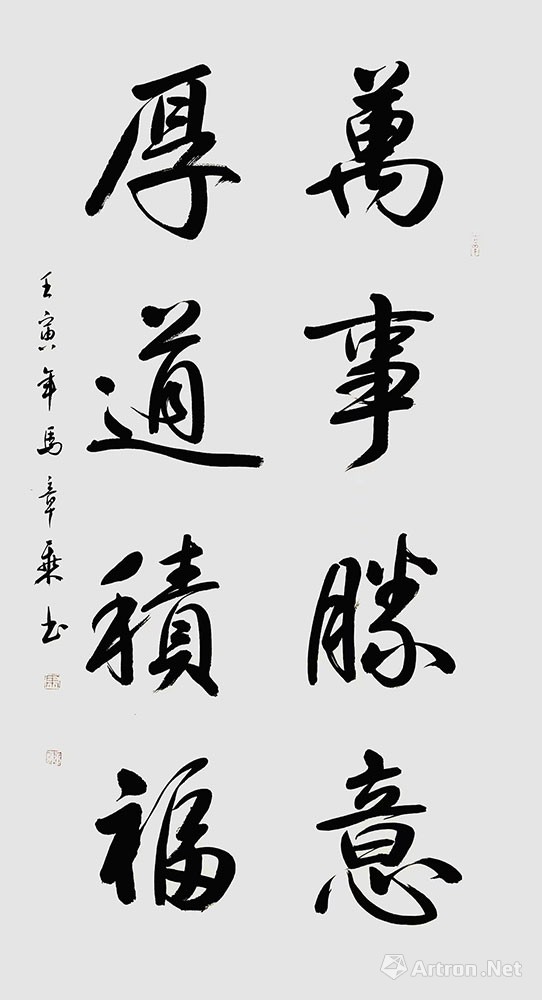 萬事勝意
厚道積福
壬寅年馬章乘书
Artron.Net